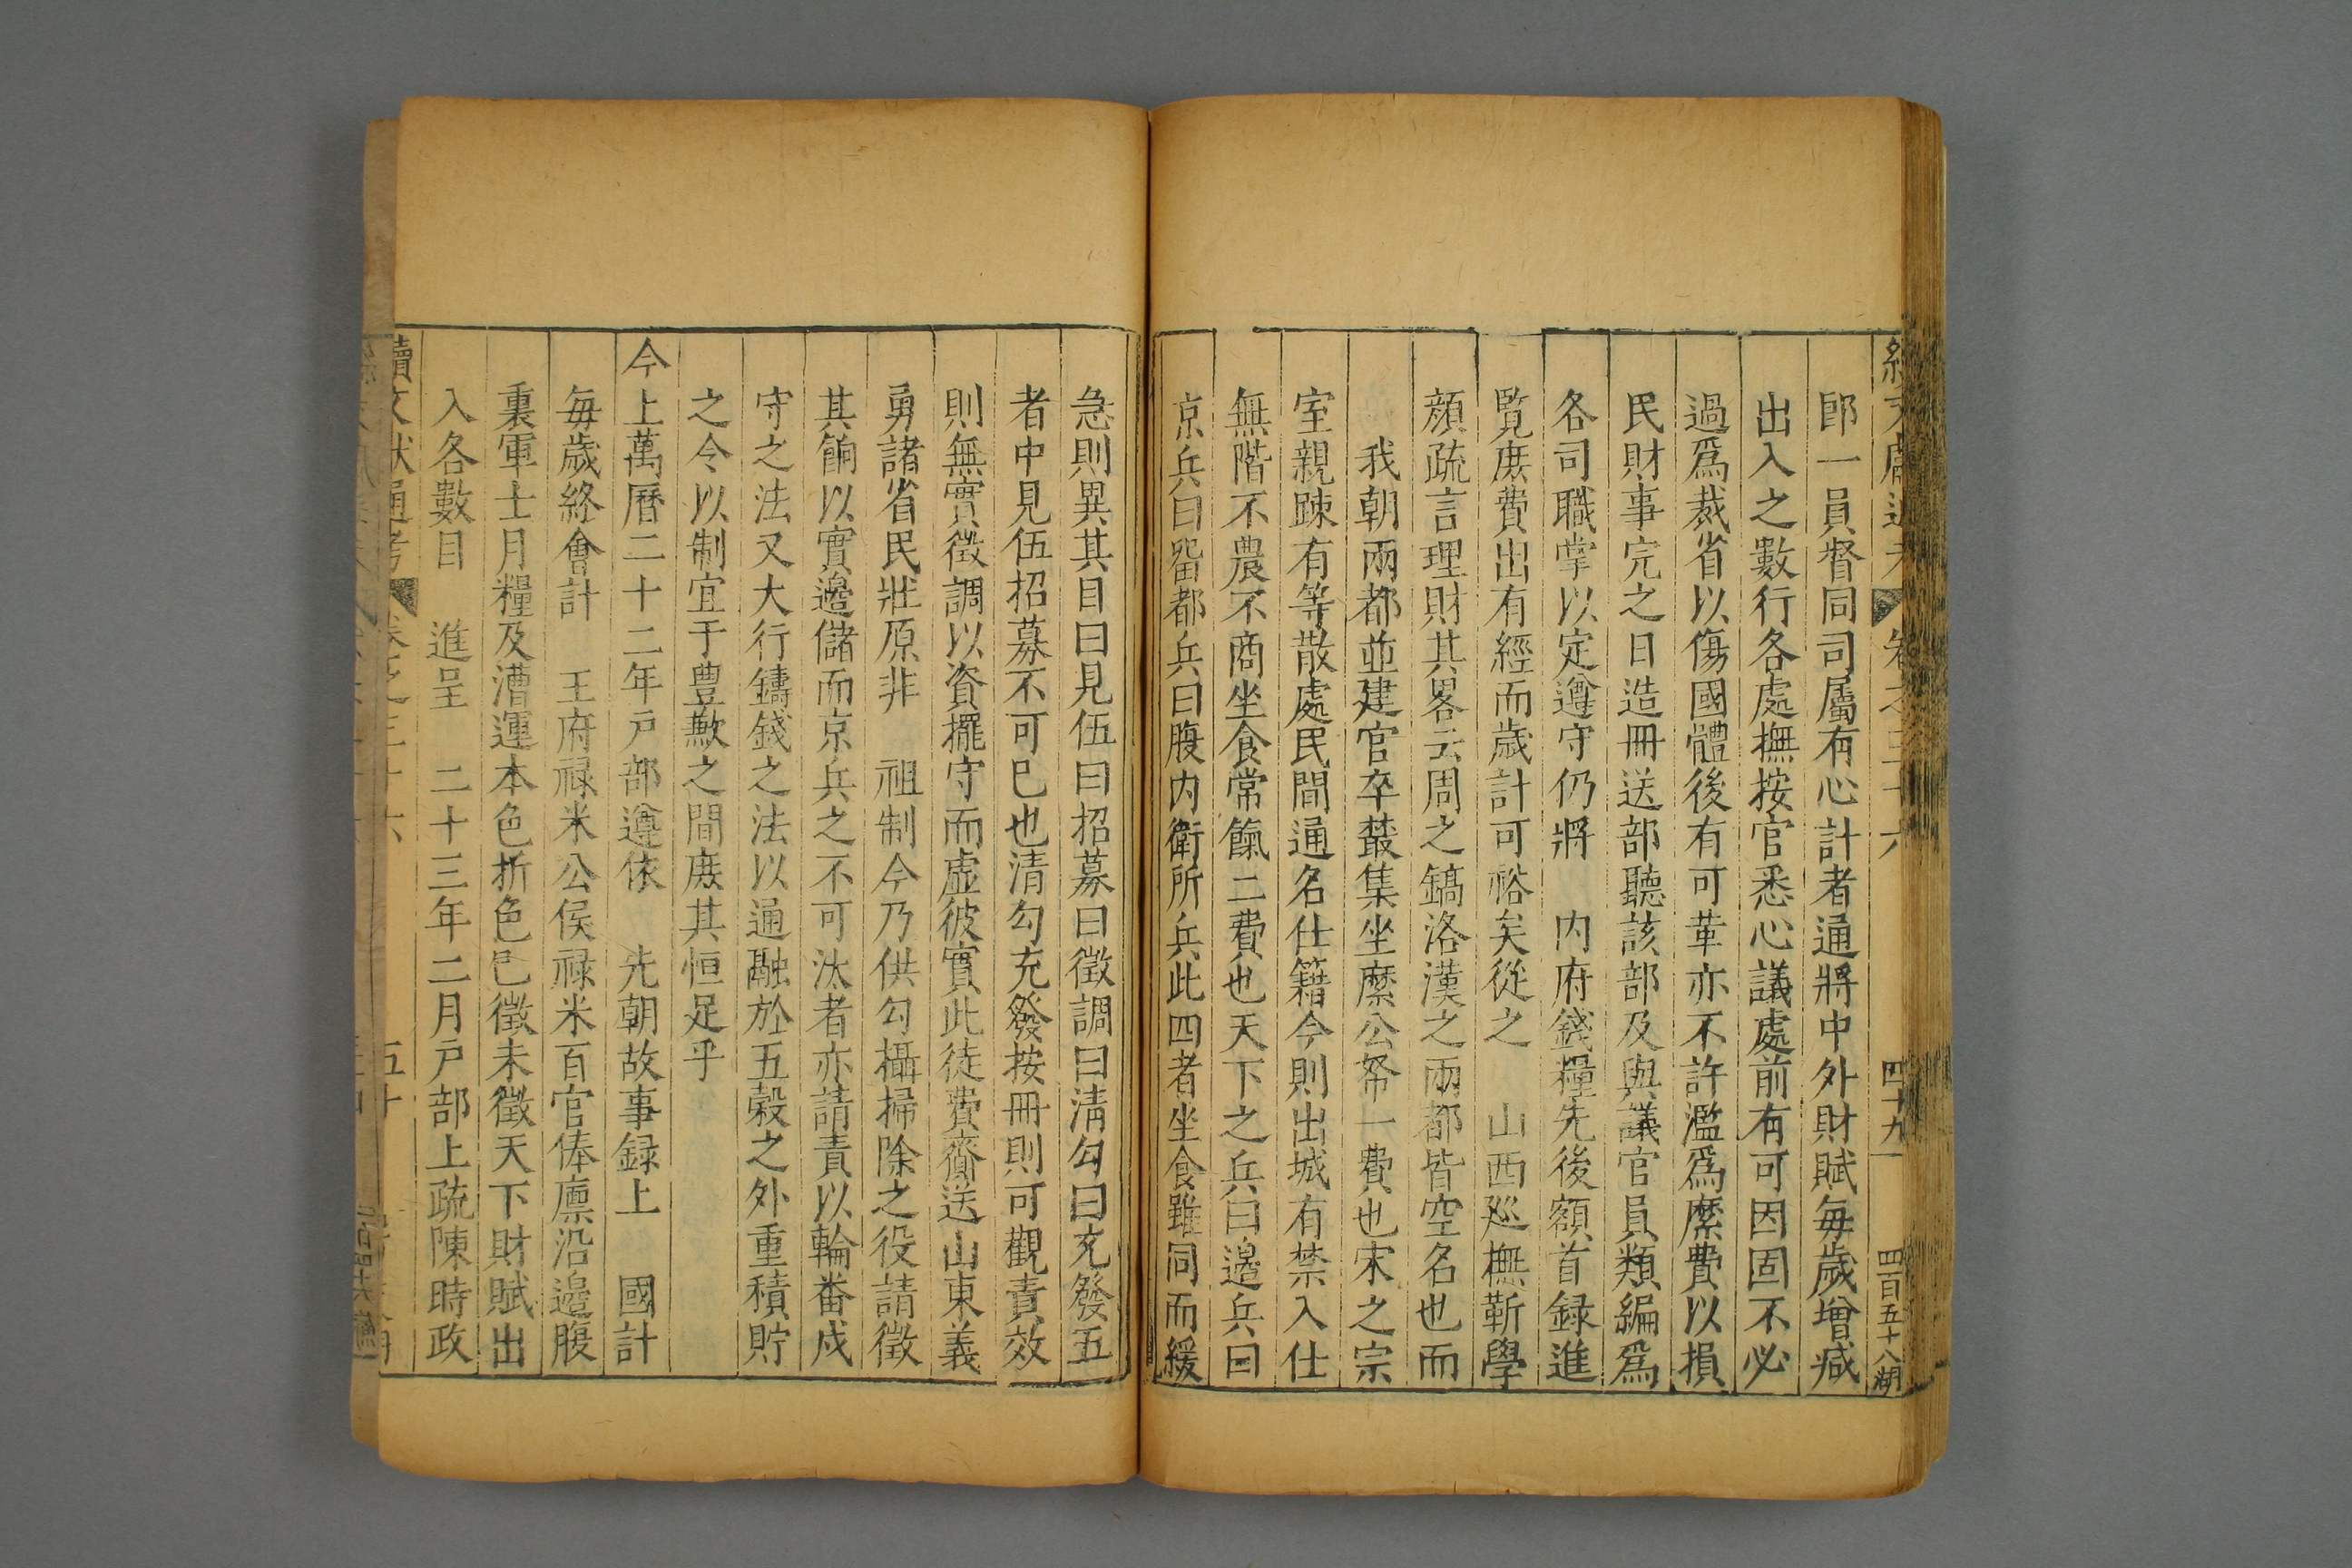 卷之三十六 四十九 四百五十八湖
郎一員督同司屬有心計者通將中外財賦每歲增減
出入之數行各處撫按官悉心議處前有可因固不必
過爲裁省以傷國體後有可革亦不許濫爲縻費以損
民財事完之日造冊送部聽該部及與議官員類編爲
各司職掌以定遵守仍將 内府錢糧先後額首録進
覽庻費出有經而歲計可裕矣從之 山西廵撫靳學
顏疏言理財其畧云周之鎬洛漢之兩都皆空名也而
我朝兩都並建官卒叢集坐縻公帑一費也宋之宗
室親踈有等散處民間通名仕籍今則出城有禁入仕
無階不農不商坐食常餼二費也天下之兵曰邉兵曰
京兵曰畱都兵曰腹内衛所兵此四者坐食雖同而緩
急則異其目曰見伍曰招募曰徵調曰淸勾曰充發五
者中見伍招募不可已也清勾充發按冊則可觀責效
則無實徵調以資擺守而虛彼實此徒費齎送山東義
勇諸省民壯原非 祖制今乃供勾攝掃除之役請徵
其餉以實邉儲而京兵之不可汰者亦請責以輪番戍
守之法又大行鑄錢之法以通融於五穀之外重積貯
之令以制宜于豊歉之間庻其恒足乎
今上萬曆二十二年戶部遵依 先朝故事録上 國計
每歲終會計 王府禄米公侯禄米百官俸廪沿邉腹
裏軍士月糧及漕運本色折色已徵未徵天下財賦出
入各數目 進呈 二十三年二月戶部上疏陳時政
續文獻通考 卷之三十六 五十